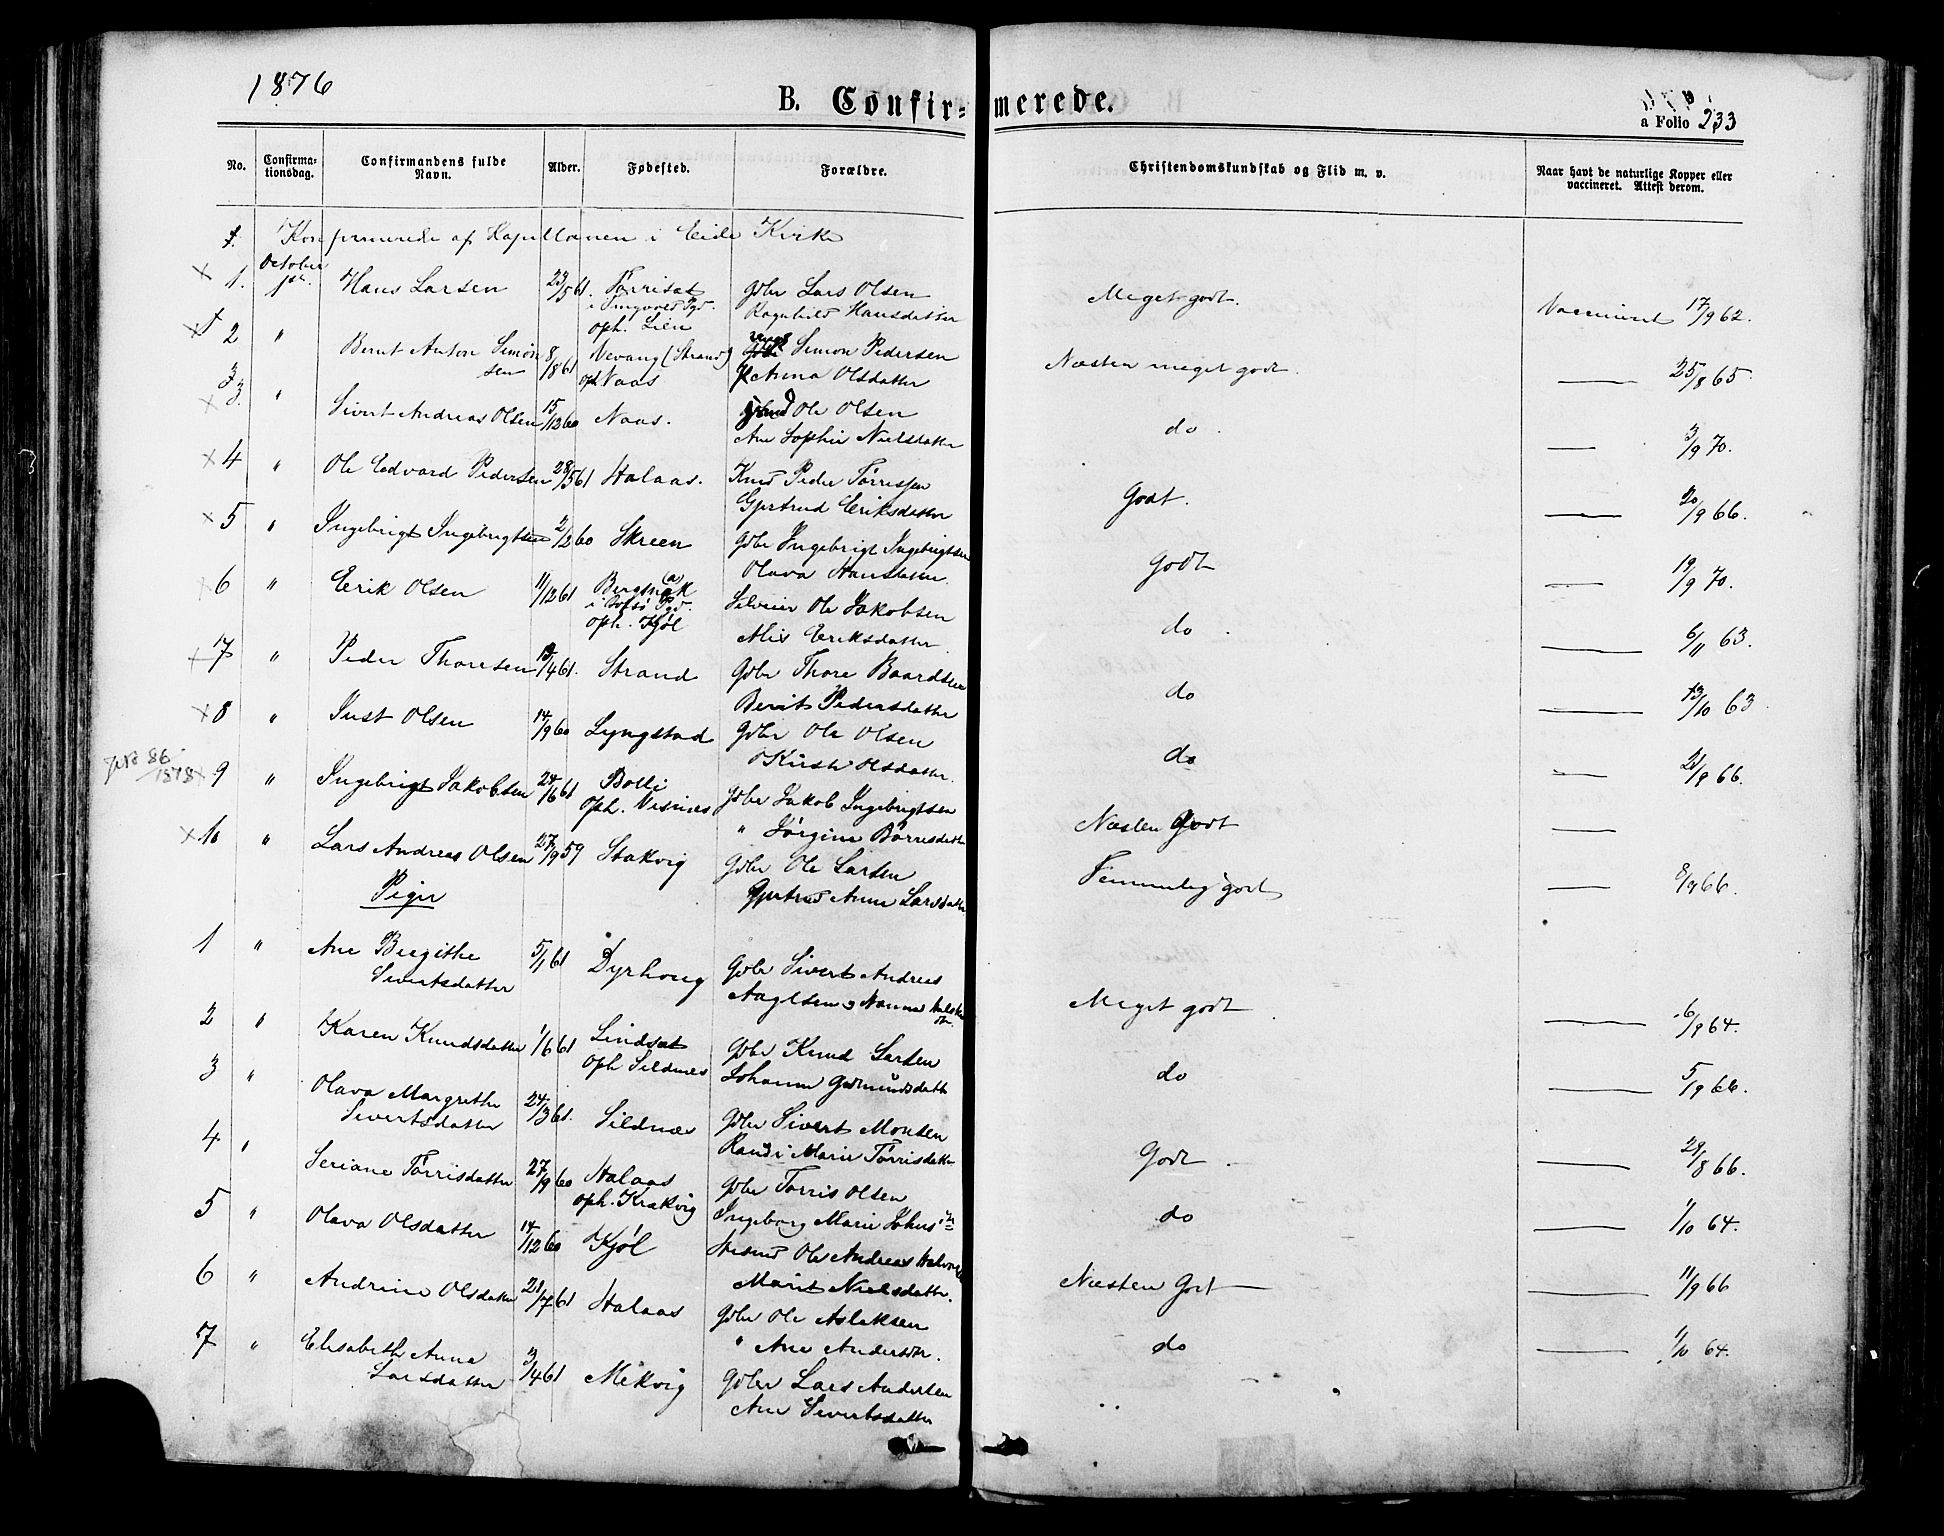 1876
B. Confirmerede.
a Folio 233
No. Confirmationsdag. Confirmandens fulde Navn. Alder. Fødested. Forældre. Christendomskundskab og Flid m. v. Naar havt de naturlige Kopper eller vaccineret. Attest derom.
Konfirmerede af Kapellanen i Eide Kirke
1. October 1ste. Hans Larsen 23/5 61. Tørrisæt Gdbr Lars Olsen Meget godt. Vaccineret 17/9 62.
i Tingvold Pgd. oph. Lien Ragnhild Hansdatter
2 " Bernt Anton Simonsen 8/8 61 Vevang (Strand) Simon Pedersen Næsten meget godt. — 25/8 65.
oph. Naas Anna Olsdatter
3. " Sivert Andreas Olsen 15/12 60 Naas. Ole Olsen do. — 3/9 70.
Ane Sophie Nielsdatter
4 " Ole Edvard Pedersen 28/5 61 Halaas. Knud Peder Tørrissen Godt. — 20/9 66.
Gjertrud Eriksdatter
5 " Ingebrigt Ingebrigtsen 2/2 60 Skreen Gdbr Ingebrigt Ingebrigtsen Godt — 19/9 70.
Olava Hansdatter
6 " Erik Olsen 11/12 61 Bergsnak (a) Ole Jakobsen do. — 6/11 63.
oph. Kjøl Eriksdatter
7 " Peder Thoresen 13/4 61. Strand Gdbr Thore Baardsen do — 13/10 63
Berit Pedersdatter
8 " Just Olsen 14/9 60 Lyngstad Gdbr Ole Olsen do — 21/9 66.
Kirsti Olsdatter.
86/1878
9 " Ingebrigt Jakobsen 24/6 61 Bolli Gdbr Jakob Ingebrigtsen Næsten Godt —
oph. Visnæs " Jørgine Børresdatter
10 " Lars Andreas Olsen 27/9 59 Stakvig Gdbr Ole Larsen Temmelig godt — 8/9 66.
Gjertrud Anne Larsdatter
Piger
1 " Ane Birgithe Sivertsdatter 5/1 61 Dyrhoug Gdbr Sivert Andreas Meget godt — 6/9 64.
2 " Karen Knudsdatter 1/6 61 Lindsæt Gdbr Knud Larsen do — 5/9 66.
oph Sildnes Johanne Gudmundsdatter
3 " Olava Margrethe Sivertsdatter 24/3 61. Sildnæs Gdbr Sivert Monsen Godt. — 28/8 66.
Randi Marie Tørrisdatter
4 " Seriane Tørrisdatter 27/9 60 Halaas Gdbr Tørris Olsen do — 1/10 64.
oph. Krakvig Ingeborg Marie Johnsdtr
5 " Olava Olsdatter 14/12 60 Kjøl Ole Andreas Næsten Godt — 11/9 66
Marit Nielsdatter.
6 " Andrine Olsdatter 21/7 61 Halaas Gdbr Ole Aslaksen do — 1/10 64.
" Ane Andersdtr.
7 " Elisabeth Anna Larsdatter 3/4 61 Mekvig Gdbr Lars Andersen
Ane Sivertsdatter